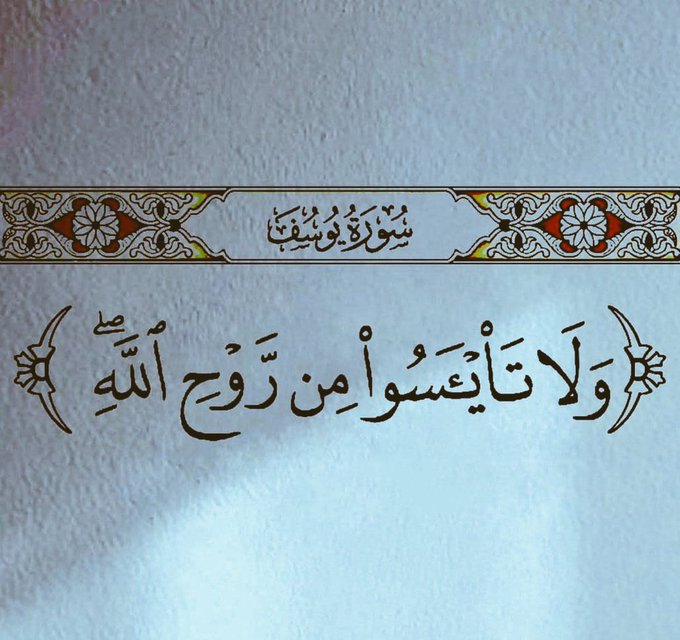 سُورَةُ يُوسُفَ
﴿وَلَا تَا۟يْـَٔسُوا۟ مِن رَّوْحِ ٱللَّهِۖ﴾